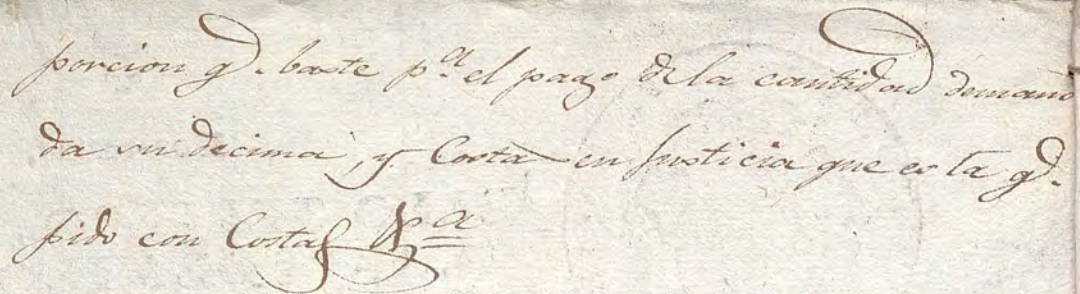 porcion qe. baste pa. el pago de la cantidad deman
da su decima, y Costa en Justicia que es la qe.
pido con Costas &a